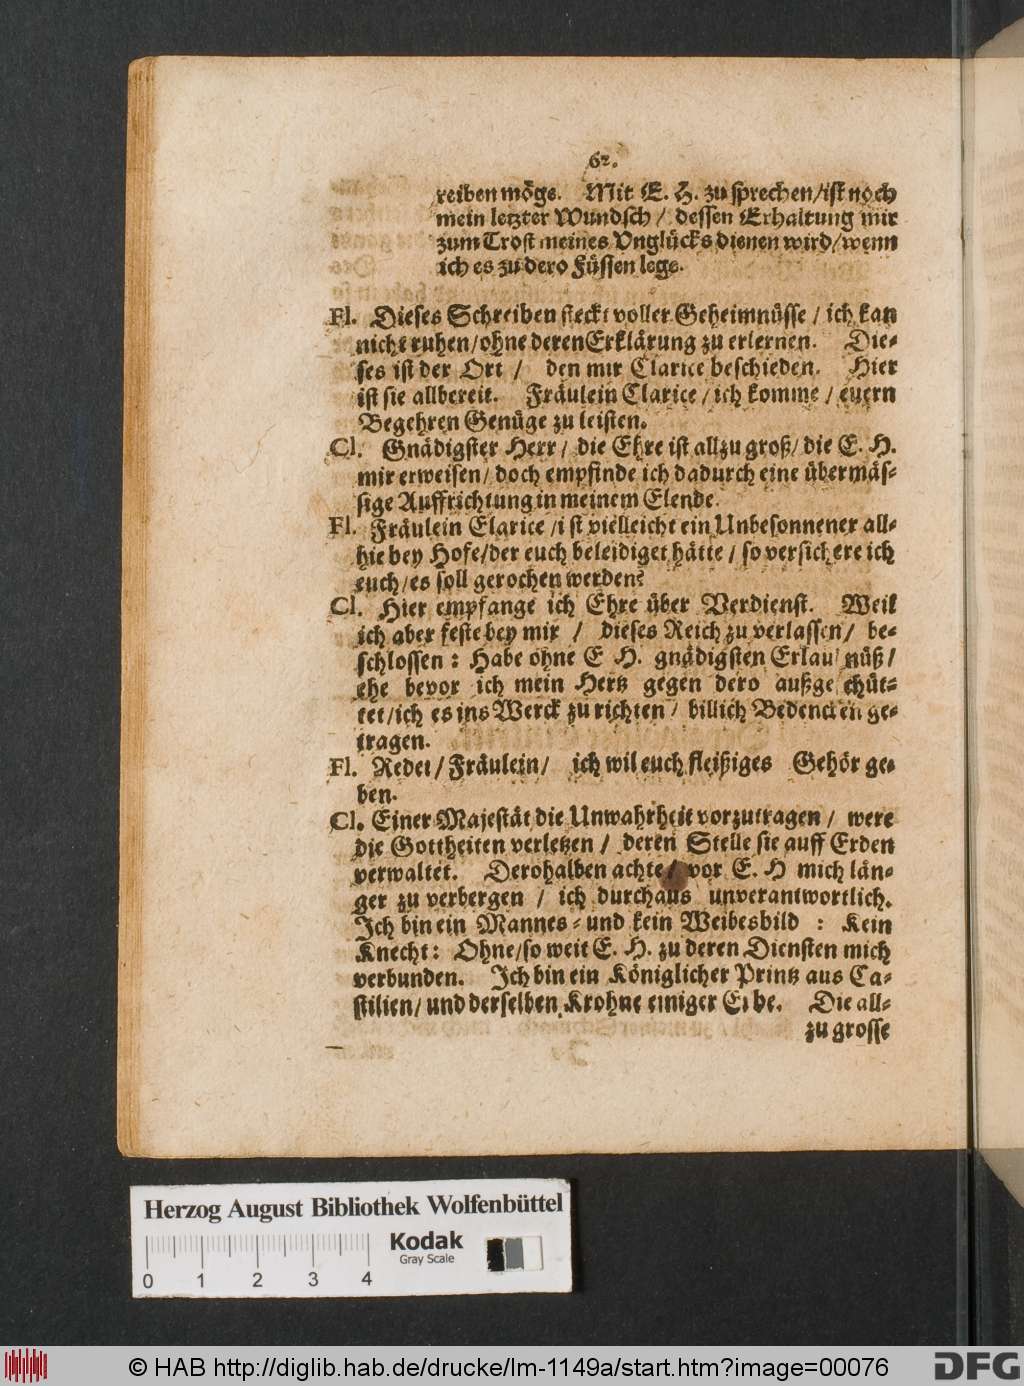 62.
reiben möge. Mit E. H. zu sprechen/ist noch
mein letzter Wundsch / dessen Erhaltung mir
zum Trost meines Vnglücks dienen wird/wenn
ich es zu dero Füssen lege.
Fl. Dieses Schreiben steckt voller Geheimnüsse / ich kan
nicht ruhen/ohne deren Erklärung zu erlernen. Die-
ses ist der Ort / den mir Clarice beschieden. Hier
ist sie allbereit. Fräulein Clarice / ich komme / euern
Begehren Genüge zu leisten.
Cl. Gnädigster Herr / die Ehre ist allzu groß/ die E. H.
mir erweisen/ doch empfinde ich dadurch eine übermäs-
sige Auffrichtung in meinem Elende.
Fl. Fräulein Elarice /ist vielleicht ein Unbesonnener all-
hie bey Hofe/der euch beleidiget hätte / so versichere ich
euch/es soll gerochen werden?
Cl. Hier empfange ich Ehre über Verdienst. Weil
ich aber feste bey mir / dieses Reich zu verlassen/ be-
schlossen: Habe ohne E H. gnädigsten Erlaubnüß/
ehe bevor ich mein Hertz gegen dero außgeschüt-
tet/ich es ins Werck zu richten / billich Bedencken ge-
tragen.
Fl. Redet / Fräulein/ ich wil euch fleißiges Gehör ge-
ben.
Cl. Einer Majestät die Unwahrheit vorzutragen / were
die Gottheiten verletzen / deren Stelle sie auff Erden
verwaltet. Derohalben achte / vor E. H mich län-
ger zu verbergen / ich durchaus unverantwortlich.
Ich bin ein Mannes- und kein Weibesbild : Kein
Knecht: Ohne/so weit E. H. zu deren Diensten mich
verbunden. Ich bin ein Königlicher Printz aus Ca-
stilien/ und derselben Krohne einiger Erbe. Die all-
zu grosse
Herzog August Bibliothek Wolfenbüttel
Kodak
Gray Scale
0 1 2 3 4
© HAB http://diglib.hab.de/drucke/lm-1149a/start.htm?image=00076
DFG